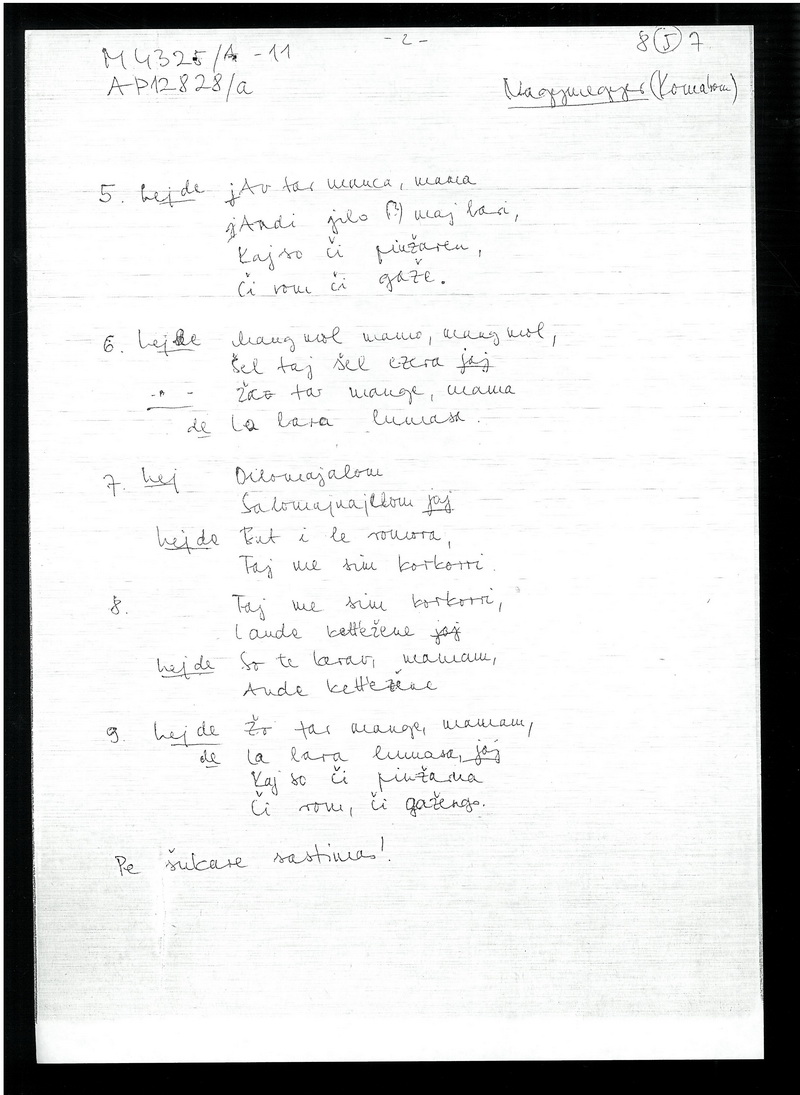 - 2 -
M 4325/A -11
8 (J) 7
AP12828/a
Nagymegyer (Komárom)
5. hejde jAv tar manca, mama
jAndi jilo (?) maj bari,
Kaj so či pinžaren,
Či rom či gaže.
6. hejde Mang mol mamo, mang mol,
Šel taj šel ezera jaj
-"- žav tar mange, mama
de la bara lumasa.
7. hej Dilomajalom
jaj
hejde But i le romora,
Taj me sim korkorri.
8. Taj me sim korkorri,
Lande kettežene jaj
hejde So te kerav, mamam,
Ande kettežene
9. hejde Žo tar mange, mamam,
de la bara lumasa, jaj
Kaj so či pinžarna
Či rom, či gažengo.
Pe šukare sastimas!